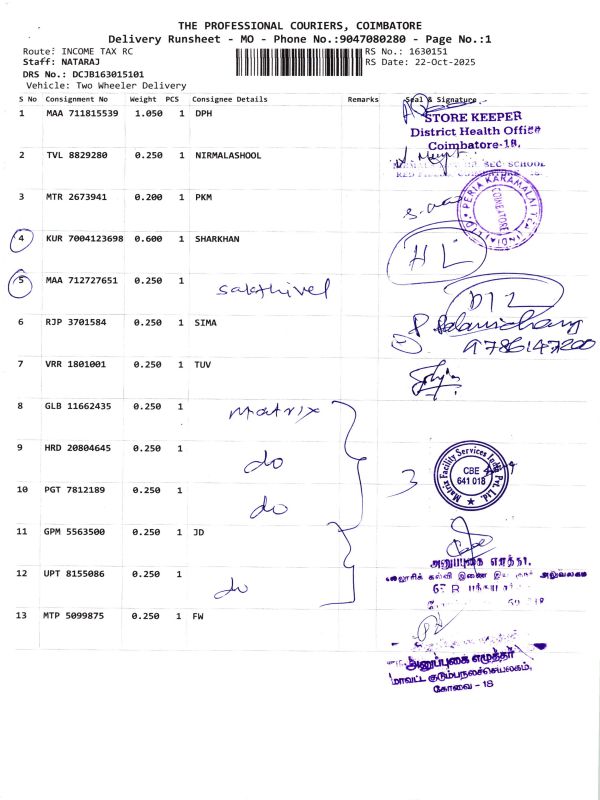 THE PROFESSIONAL COURIERS, COIMBATORE
Delivery Runsheet - MO - Phone No.:9047080280 - Page No.:1
Route: INCOME TAX RC
RS No.: 1630151
Staff: NATARAJ
RS Date: 22-Oct-2025
DRS No.: DCJB163015101
Vehicle: Two Wheeler Delivery
S No Consignment No Weight PCS Consignee Details Remarks Seal & Signature
1 MAA 711815539 1.050 1 DPH
STORE KEEPER
District Health Office
Coimbatore-18.
2 TVL 8829280 0.250 1 NIRMALASHOOL
SEC SCHOOL
3 MTR 2673941 0.200 1 PKM
PERIA KARAMALAI TEA (INDIA) LTD
COIMBATORE
4 KUR 7004123698 0.600 1 SHARKHAN
HL
5 MAA 712727651 0.250 1 sakthivel
D12
6 RJP 3701584 0.250 1 SIMA
9786147200
7 VRR 1801001 0.250 1 TUV
8 GLB 11662435 0.250 1 matrix
9 HRD 20804645 0.250 1 do
3
Matrix Facility Services India Pvt. Ltd.
CBE
641 018
10 PGT 7812189 0.250 1 do
11 GPM 5563500 0.250 1 JD
அனுப்புகை எழுத்தர்
கல்லூரிக் கல்வி இணை இயக்குநர் அலுவலகம்
12 UPT 8155086 0.250 1 do
13 MTP 5099875 0.250 1 FW
அனுப்புகை எழுத்தர்
மாவட்ட குடும்பநலச்செயலகம்,
கோவை - 18